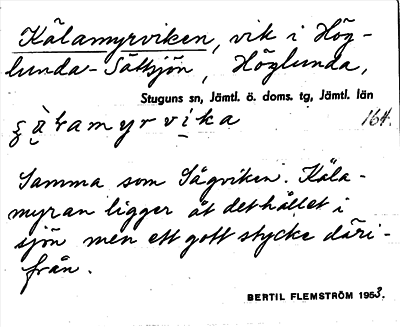 Kälamyrviken, vik i Hög-
lunda-Sättsjön, Höglunda,
Stuguns sn, Jämtl. ö. doms. tg, Jämtl. län
164.
Samma som Sågviken. Käla-
myran ligger åt det hållet i
sjön men ett gott stycke däri-
från.
BERTIL FLEMSTRÖM 1953.